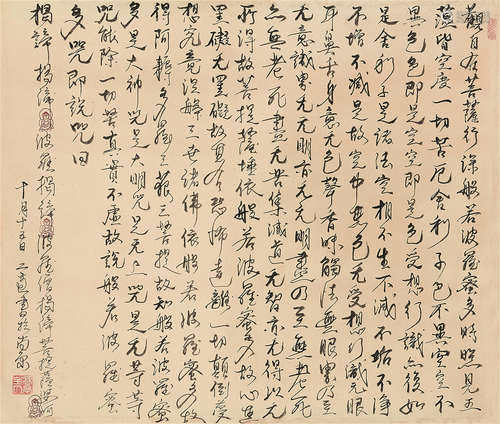 觀自在菩薩行深般若波羅蜜多時照見五
蘊皆空度一切苦厄舍利子色不異空空不
異色色即是空空即是色受想行識亦復如
是舍利子是諸法空相不生不滅不垢不淨
不增不減是故空中無色无受想行識无眼
耳鼻舌身意无色聲香味觸法無眼界乃至
无意識界无无明亦无无明盡乃至無老死
亦無老死盡无苦集滅道无智亦无得以无
所得故菩提薩埵依般若波羅蜜多故心无
罣礙无罣礙故無有恐怖遠離一切顛倒夢
想究竟涅槃三世諸佛依般若波羅蜜多故
得阿耨多羅三藐三菩提故知般若波羅蜜
多是大神咒是大明咒是无上咒是无等等
咒能除一切苦真實不虛故說般若波羅蜜
多咒即說咒曰
揭諦揭諦波羅揭諦波羅僧揭諦菩提薩婆訶
十月十五日